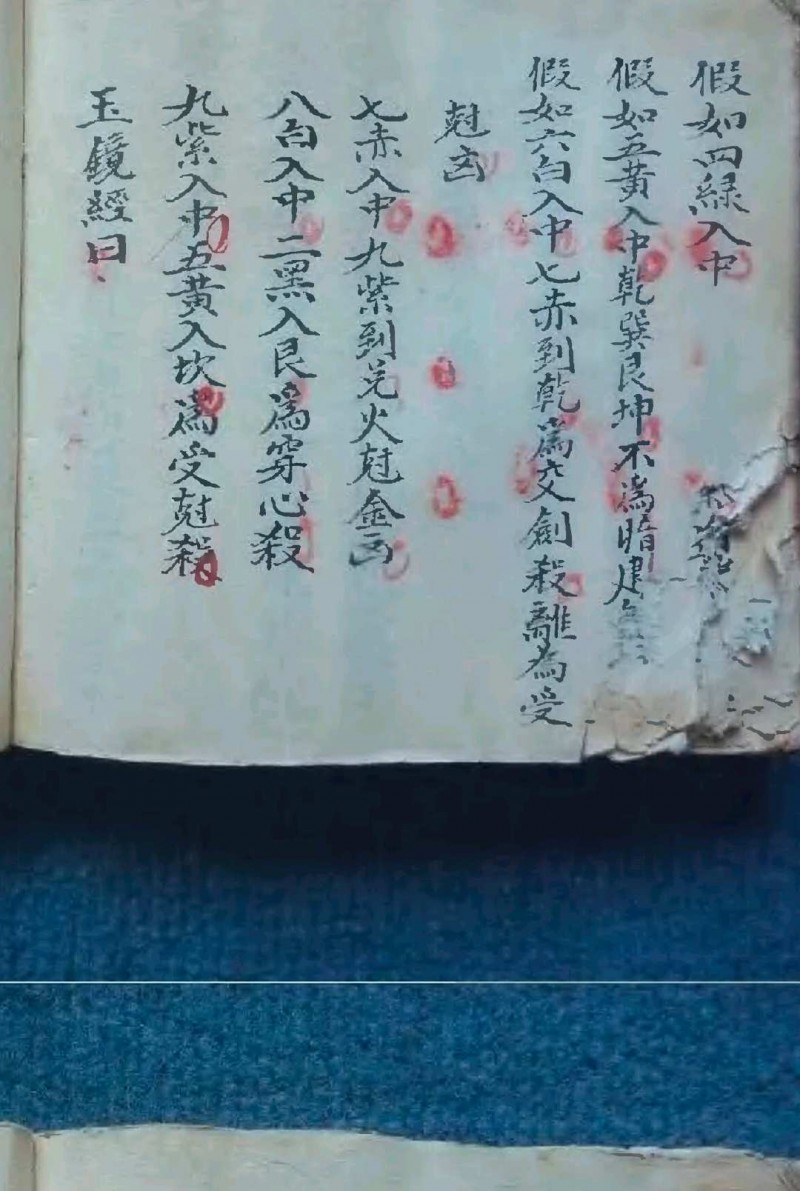 假如四綠入中
假如五黃入中乾巽艮坤不為暗建
假如六白入中七赤到乾為交劍殺離為受
尅凶
七赤入中九紫到兌火尅金凶
八白入中二黑入艮為穿心殺
九紫入中五黃入坎為受尅殺
玉鏡經曰